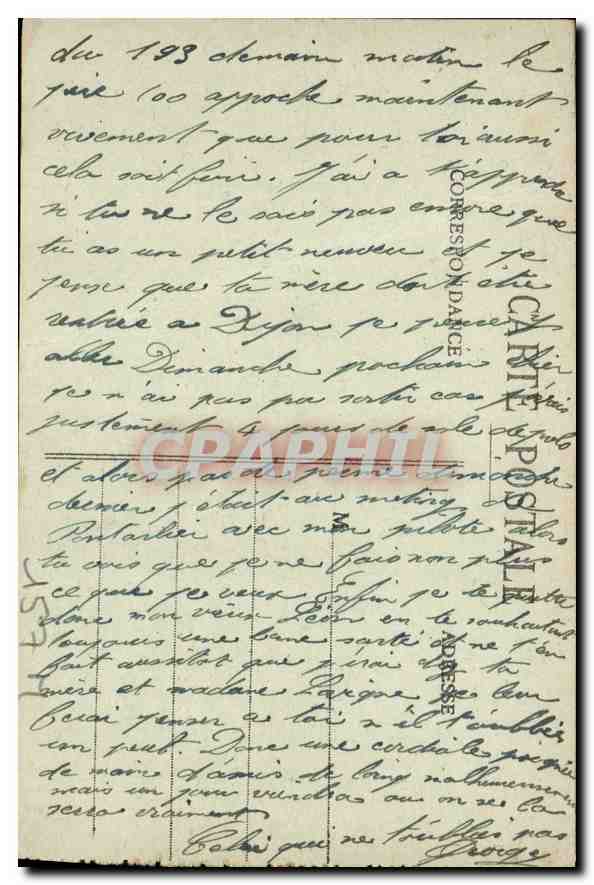 du 193 demain matin le
père 100 approche maintenant
vivement que pour toi aussi
cela soit fini. J'ai a t'apprendre
si tu ne le sais pas encore que
tu as un petit neuveu et je
pense que ta mère doit être
rentrée a Dijon je pense y
aller Dimanche prochain hier
je n'ai pas pu sortir car j'avais
justement 4 jours de sale de polo
et alors pas de perme dimanche
dernier j'étais au meting de
Pontarlier avec mon pilote alors
tu vois que je ne fais non plus
ce que je veux Enfin je te quitte
donc mon vieux Léon en te souhaitant
toujours une bone santé et ne t'en
fait aussitot que j'irai Dijon ta
mère et madame je leur
ferai penser a toi s'il t'oublie
un peut Donc une cordiale poignée
de main d'amis de loing malheureusement
mais un jour viendra ou on se la
serra vraiment
Celui qui ne t'oublie pas
George
CARTE POSTALE
CORRESPONDANCE
ADRESSE
M
CPARPHIL